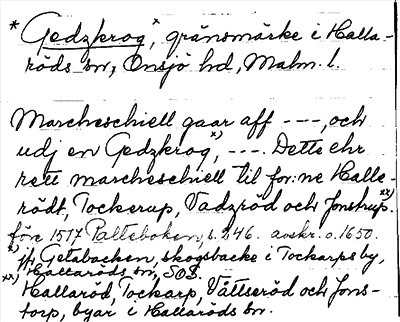 * Gedzkrog*, gränsmärke i Halla-
röds sn, Onsjö hd, Malm. l.
Marcheschiell gaar aff ---, och
udj en Gedzkrog x), ---. Dette ehr
rett marcheschiell til for:ne Halle- xx)
rödt, Tockerup, Vadzröd och Jonstrup.
före 1517 Palteboken, s. 246. avskr. o. 1650.
x) jfr Getabacken, skogsbacke i Tockarps by,
Hallaröds sn, SOS.
xx) Hallaröd, Tockarp, Vättseröd och Jons-
torp, byar i Hallaröds sn.